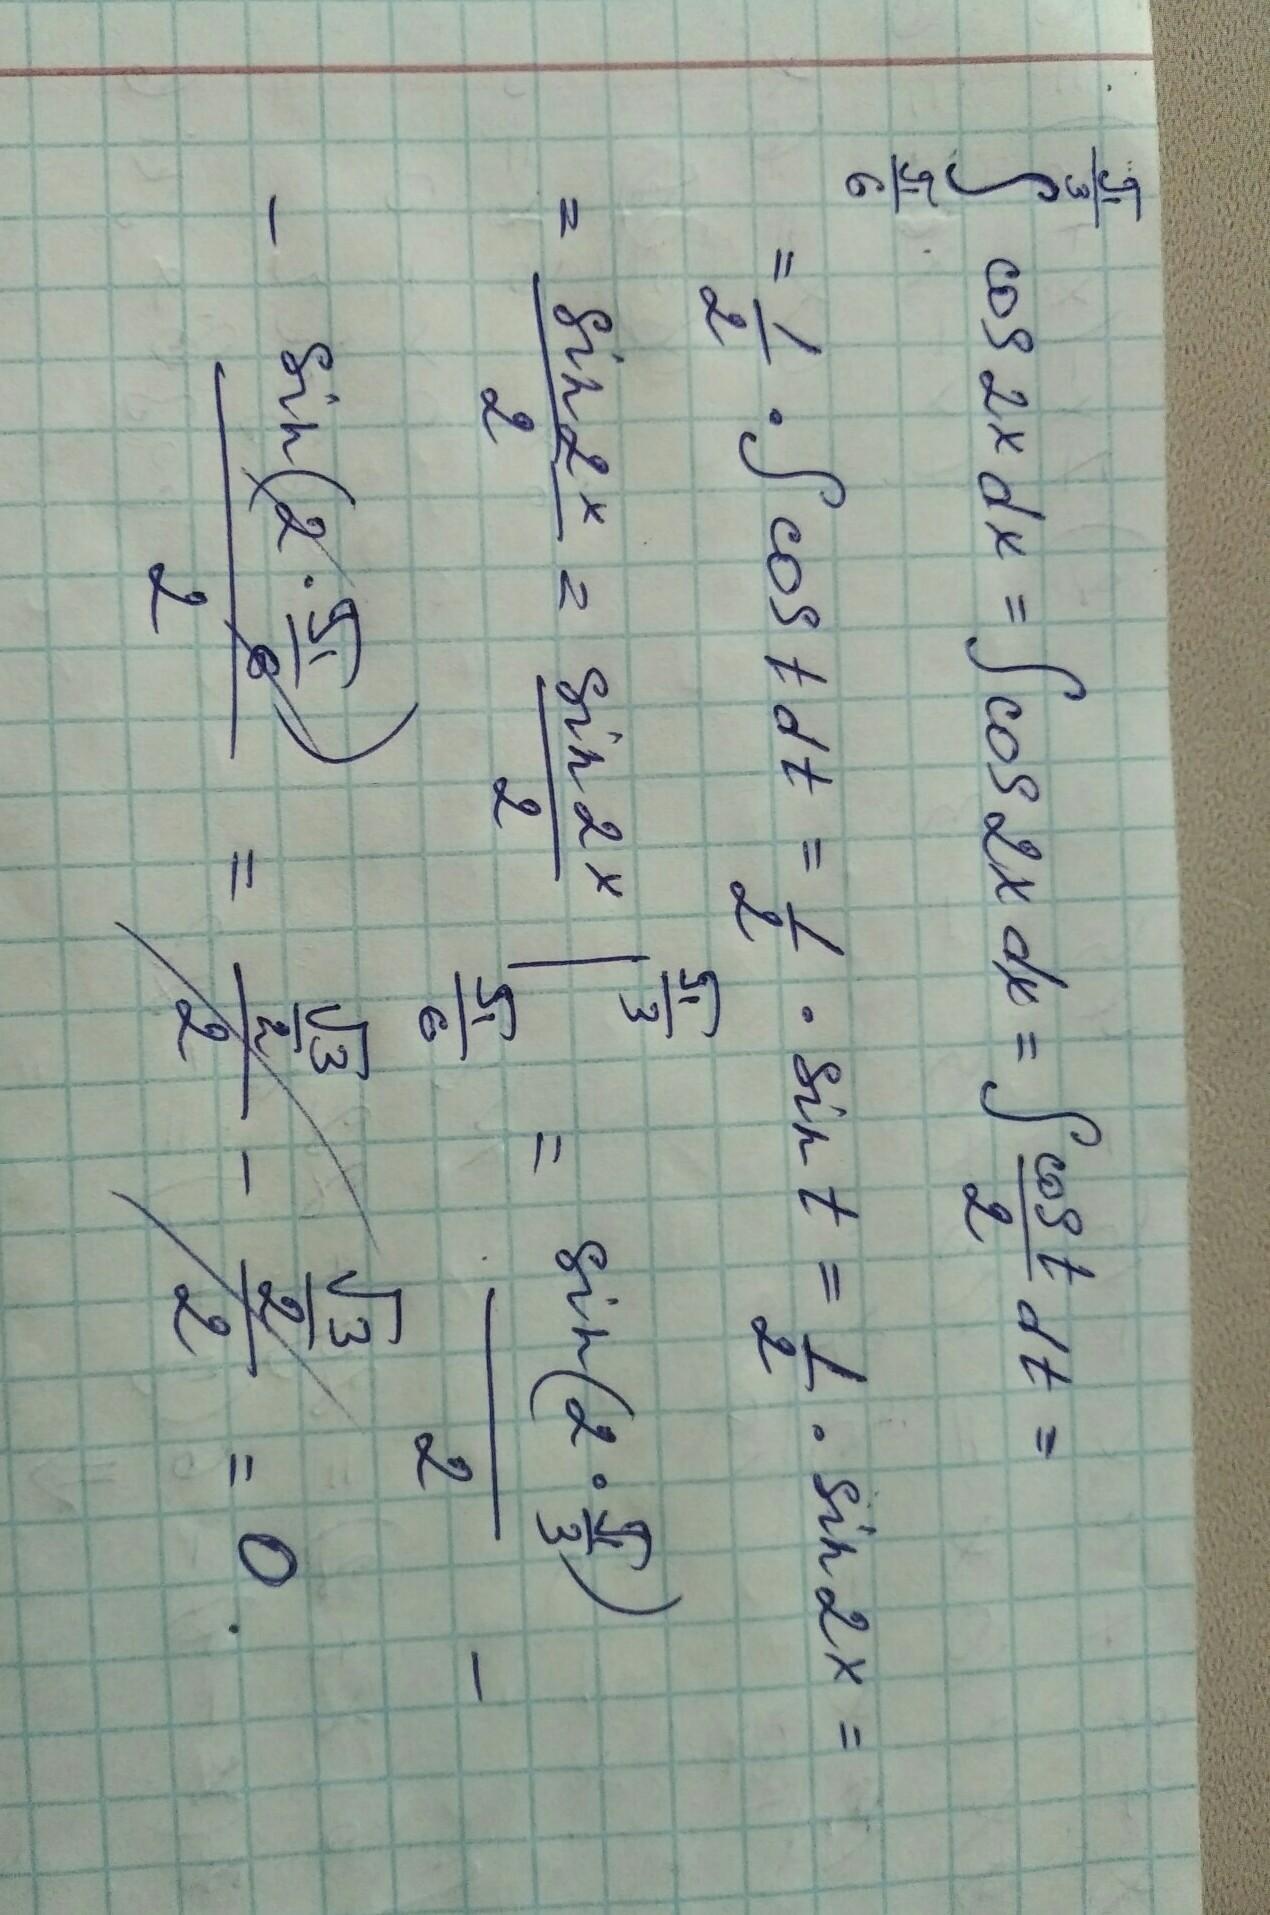 ∫_{π/6}^{π/3} cos 2x dx = ∫ cos 2x dx = ∫ \frac{cos t}{2} dt =
= \frac{1}{2} · ∫ cos t dt = \frac{1}{2} · sin t = \frac{1}{2} · sin 2x =
= \frac{sin 2x}{2} = \frac{sin 2x}{2} |_{π/6}^{π/3} = \frac{sin(2 · \frac{π}{3})}{2} -
- \frac{sin(2 · \frac{π}{6})}{2} = \frac{\frac{√3}{2}}{2} - \frac{\frac{√3}{2}}{2} = 0.